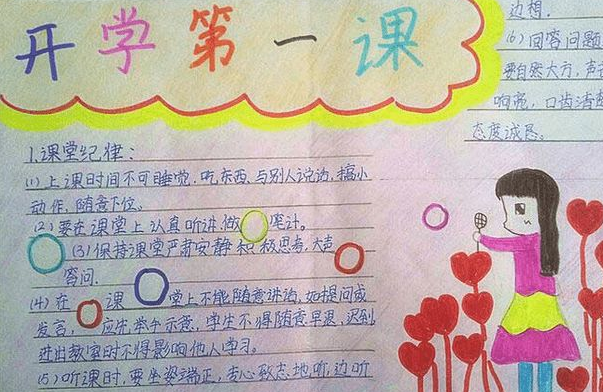 开学第一课
1.课堂纪律：
(1)上课时间不可睡觉，吃东西，与别人说话，搞小
动作，随意下位。
(2)要在课堂上认真听讲，做笔计。
(3)保持课堂严肃安静 积极思考，大声
答问.
(4)在课堂上不能随意讲话，如提问或
发言，应先举手示意，学生不得随意早退，迟到
进出教室时不得影响他人学习。
(5)听课时，要坐姿端正，专心致志地听，边听
边想.
(6)回答问题
要自然大方，声音
响亮，口齿清楚
态度诚恳。